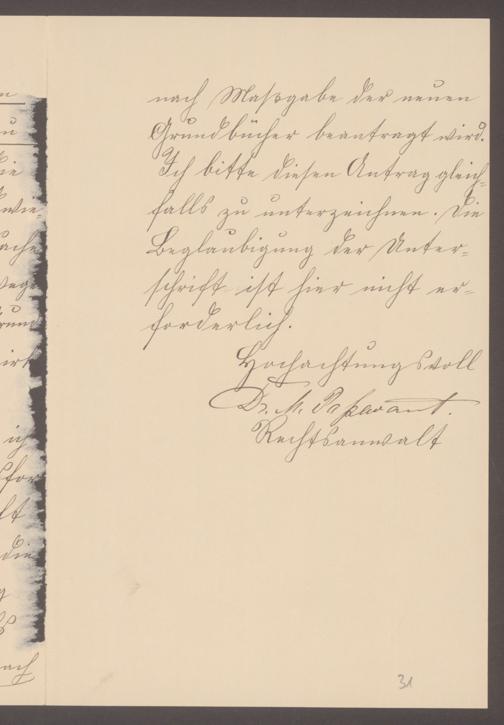 nach Massgabe der neuen
Grundbücher beantragt wird.
Ich bitte diesen Antrag gleich-
falls zu unterzeichnen. Die
Beglaubigung der Unter-
schrift ist hier nicht er-
forderlich.
Hochachtungsvoll
Dr. M. Passavant.
Rechtsanwalt
31